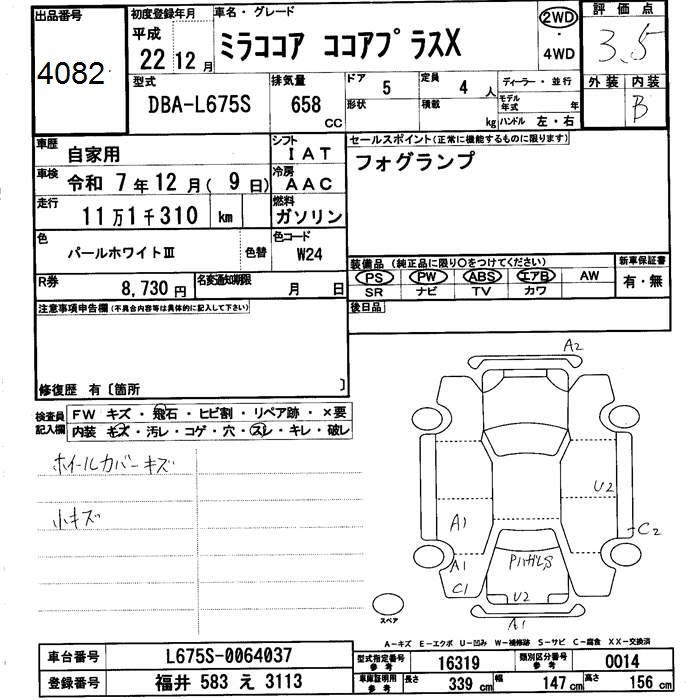 出品番号 4082
初度登録年月 平成 22年 12月
車名・グレード ミラココア ココアプラスX
2WD・4WD
評価点 3.5
外装 内装 B
型式 DBA-L675S
排気量 658 CC
ドア 5
形状
定員 4 人
積載 kg
ディーラー・並行
モデル年式 年
ハンドル 左・右
車歴 自家用
シフト IAT
車検 令和 7年 12月( 9日)
冷房 AAC
走行 11万1千310 km
燃料 ガソリン
色 パールホワイトⅢ 色替
色コード W24
R券 8,730円
名変通知期限 月 日
セールスポイント(正常に機能するものに限ります)
フォグランプ
装備品(純正品に限り〇をつけてください)
PS PW ABS エアB AW
SR ナビ TV カワ
新車保証書 有・無
後日品
注意事項申告欄(不具合内容等は具体的に記入して下さい)
修復歴 有〔箇所 〕
検査員記入欄
FW キズ・飛石・ヒビ割・リペア跡・×要
内装 キズ・汚レ・コゲ・穴・スレ・キレ・破レ
ホイールカバーキズ
小キズ
A2
U2
C2
A1
A1
C1
U2
A1
スペア
A-キズ E-エクボ U-凹み W-補修跡 S-サビ C-腐食 XX-交換済
車台番号 L675S-0064037
登録番号 福井 583 え 3113
型式指定番号 参考 16319
類別区分番号 参考 0014
車庫証明用 参考 長さ 339 cm 幅 147 cm 高さ 156 cm